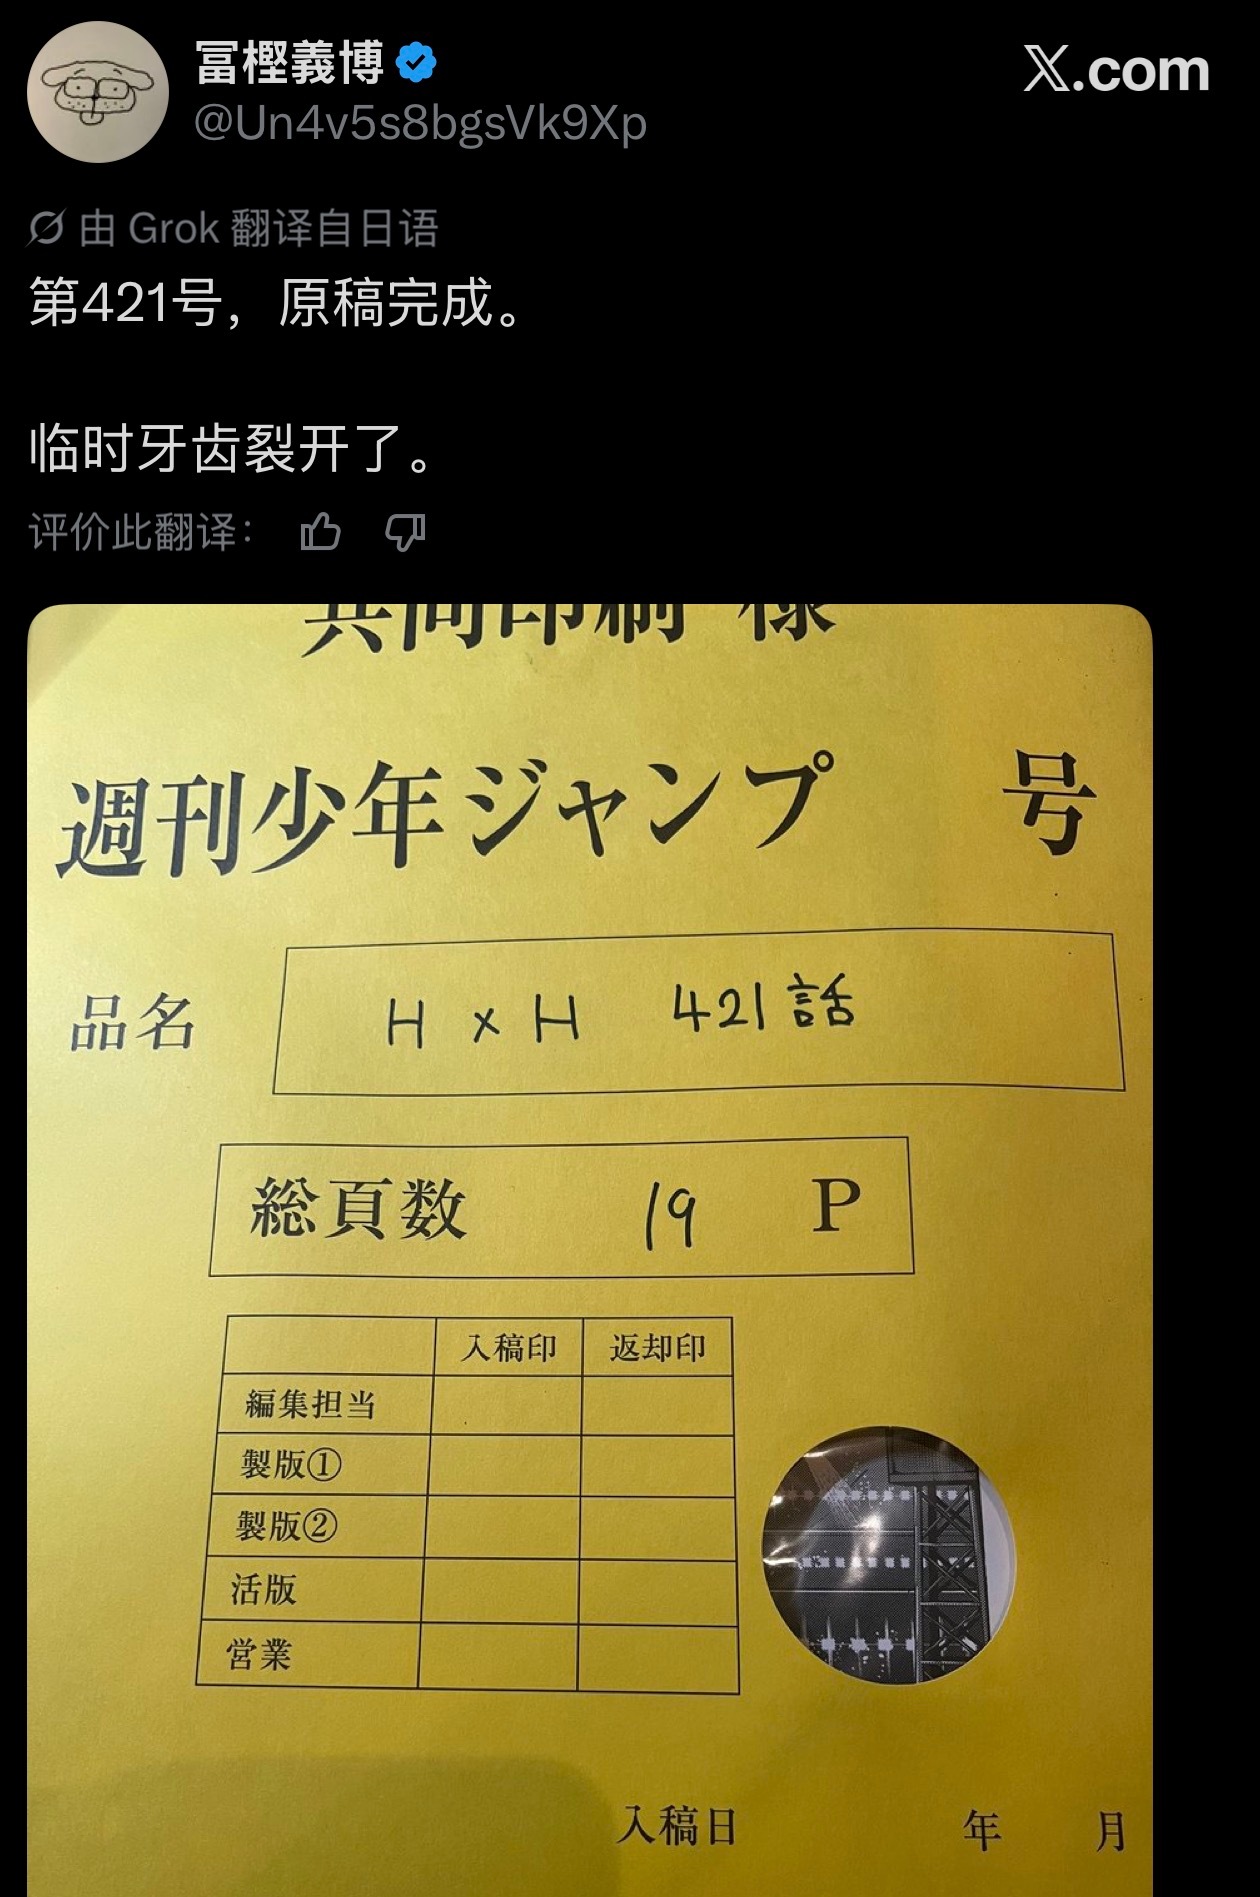 冨樫義博
X.com
@Un4v5s8bgsVk9Xp
由 Grok 翻译自日语
第421号，原稿完成。
临时牙齿裂开了。
评价此翻译：
共同印刷 様
週刊少年ジャンプ 号
品名 H x H 421話
総頁数 19 P
入稿印 返却印
編集担当
製版①
製版②
活版
営業
入稿日 年 月